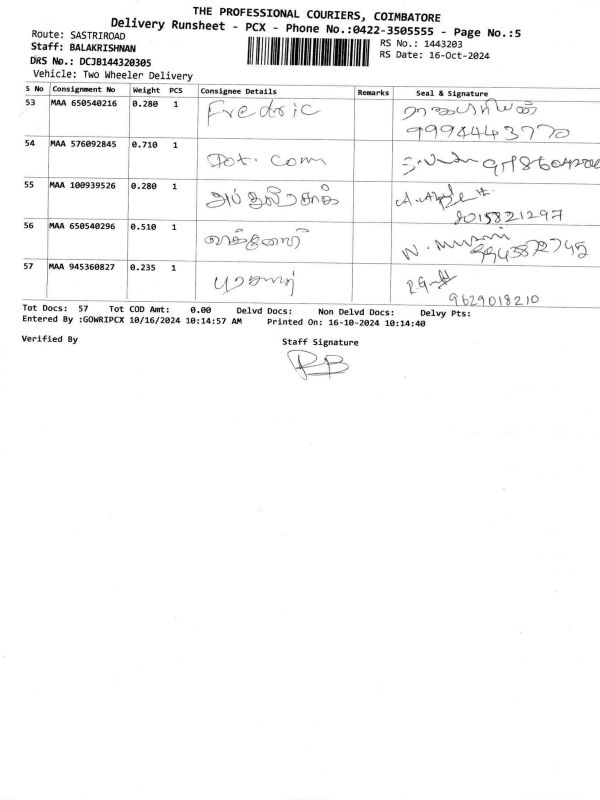 THE PROFESSIONAL COURIERS, COIMBATORE
Delivery Runsheet - PCX - Phone No.:0422-3505555 - Page No.:5
Route: SASTRIROAD
RS No.: 1443203
Staff: BALAKRISHNAN
RS Date: 16-Oct-2024
DRS No.: DCJB144320305
Vehicle: Two Wheeler Delivery
S No Consignment No Weight PCS Consignee Details Remarks Seal & Signature
53 MAA 650540216 0.280 1 Fredric
9994443770
54 MAA 576092845 0.710 1 Dot. Com
55 MAA 100939526 0.280 1
8015821297
56 MAA 650540296 0.510 1 N. Murani
9943872745
57 MAA 945360827 0.235 1
9629018210
Tot Docs: 57 Tot COD Amt: 0.00 Delvd Docs: Non Delvd Docs: Delvy Pts:
Entered By :GOWRIPCX 10/16/2024 10:14:57 AM Printed On: 16-10-2024 10:14:40
Verified By Staff Signature
RB